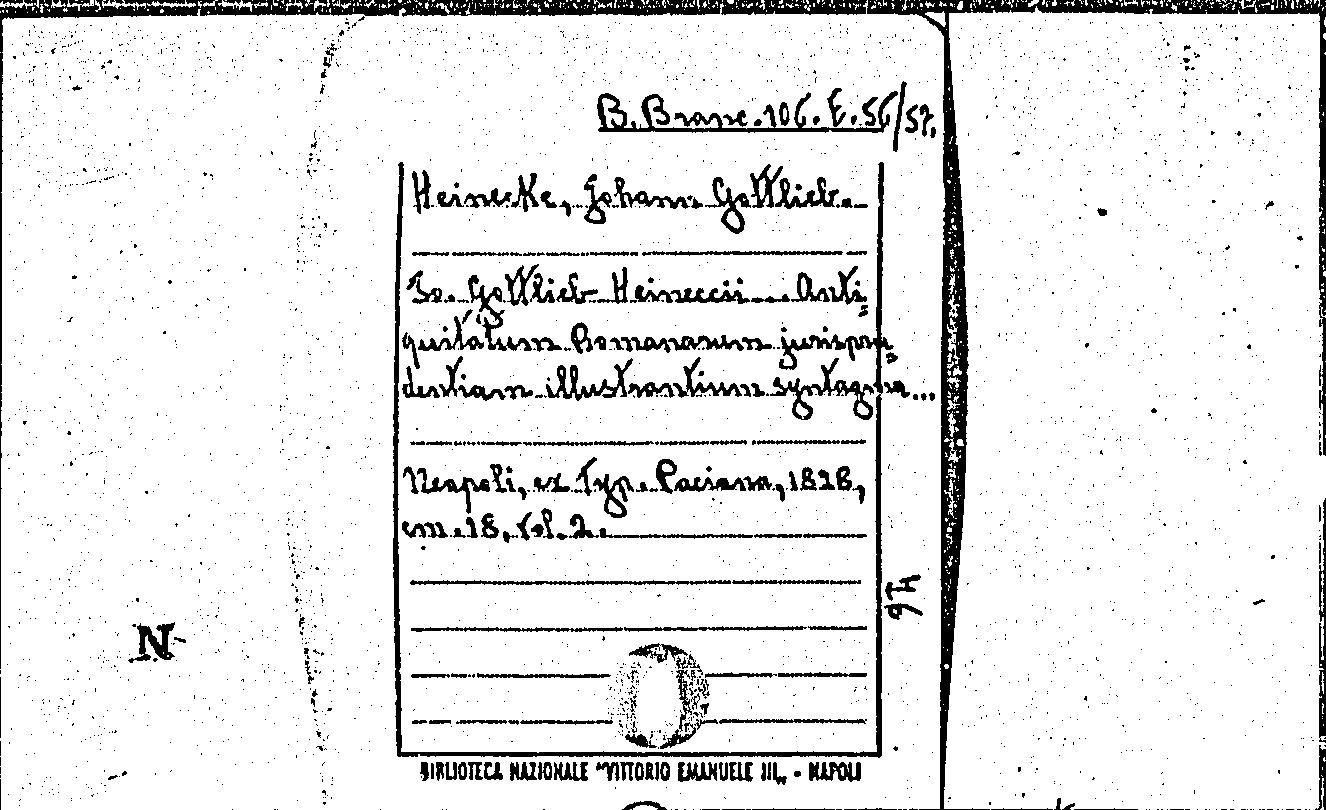 B. Branc. 106. E. 56/57.
Heinecke, Johann Gottlieb.
Jo. Gottlieb Heineccii... Anti=
quitatum Romanarum jurispru=
dentiam illustrantium syntagma...
Neapoli, ex Typ. Paciana, 1828,
cm. 18, vol. 2.
N
BIBLIOTECA NAZIONALE "VITTORIO EMANUELE III" - NAPOLI